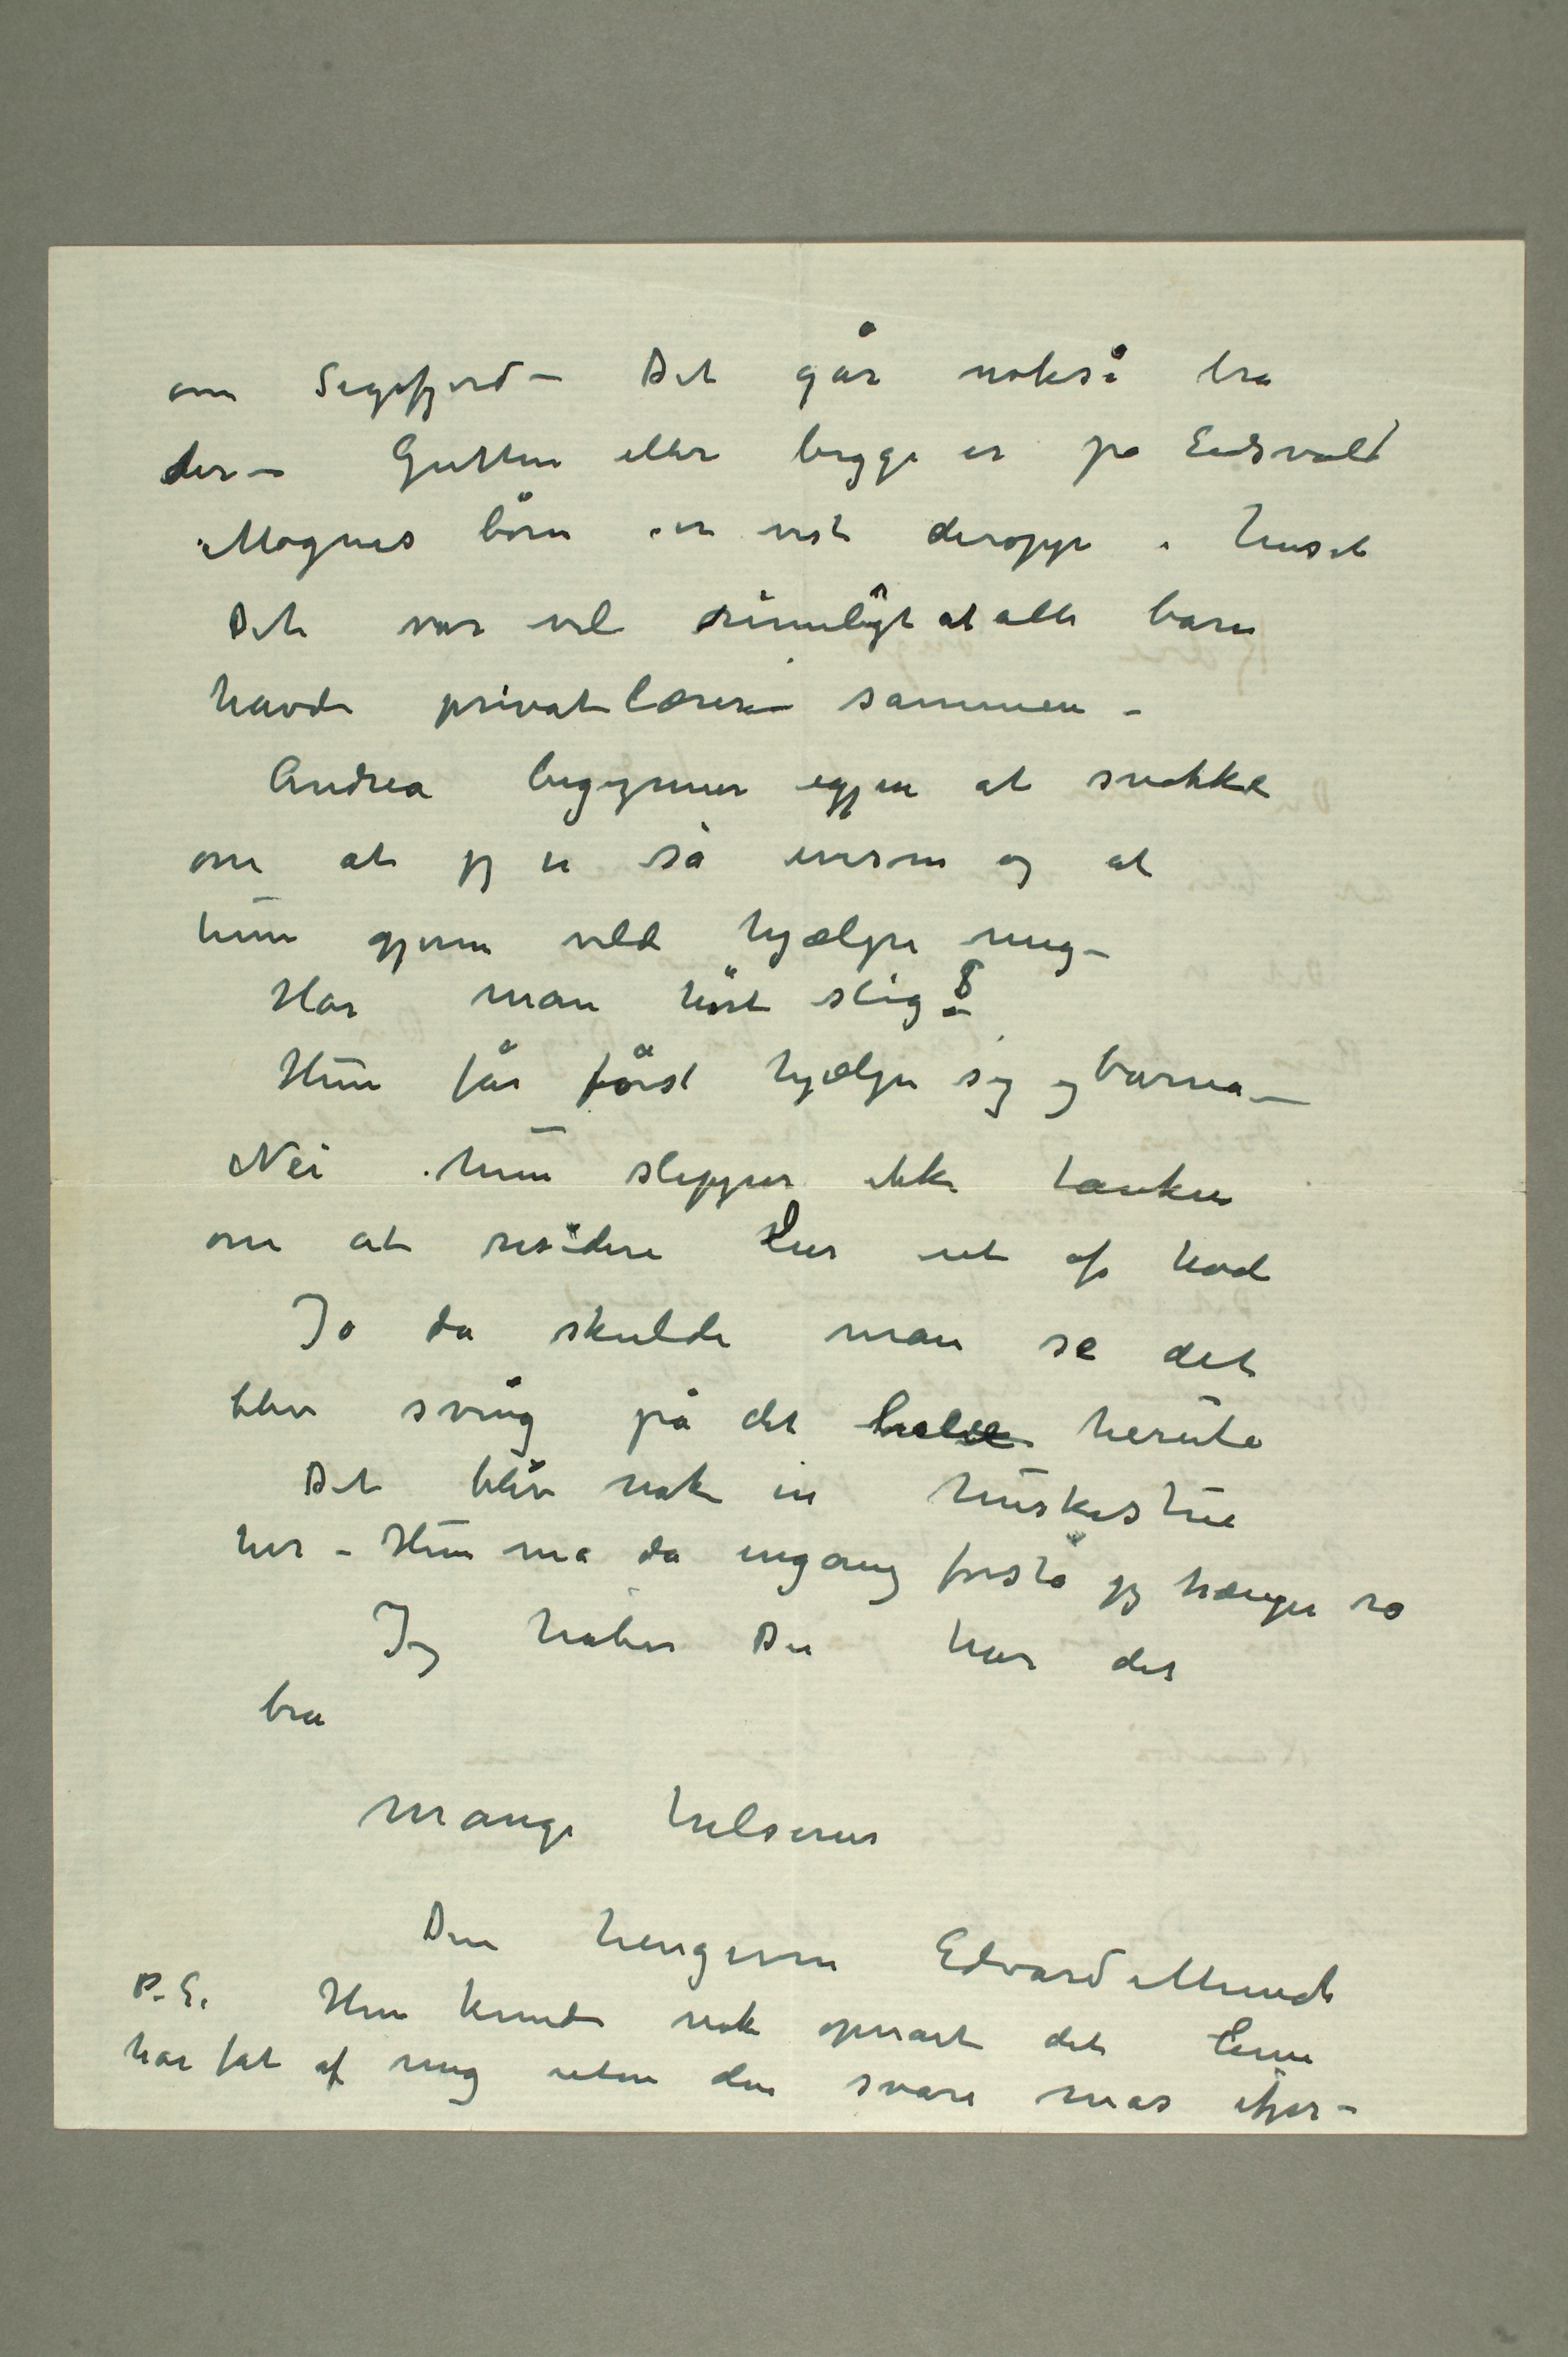 om Sigefjord – Det går nokså bra
der – Gutten eller begge er på Eidsvold
Magnes börn er vist deroppe i huset
Det var vel rimeligt at alle barn
havde privatlærer sammen –
Andrea begynner igjen at snakke
om at jeg er så ensom og at
hun gjerne vilde hjælpe mig –
Har man hört slig!
Hun får först hjælpe sig og barna –
Nei hun slipper ikke tanken
om at residere her ut af hod
Jo da skulde man se det
blev sving på det hele herute
Det blir nok en huskestue
her – Hun må da engang forstå jeg trænger ro
Jeg håber Du har det
bra
Mange hilsener
Din hengivne Edvard Munch
P.S. Hun kunde nok opnået det hun
har fåt af mig uten den svare mas ifjor –